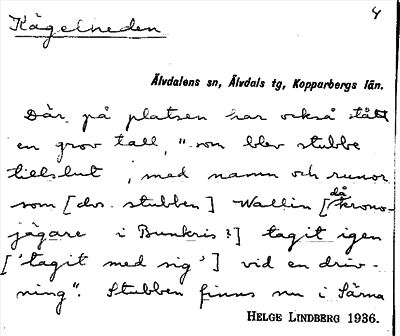 Kägelheden 4
Älvdalens sn, Älvdals tg, Kopparbergs län.
Där på platsen har också stått
en grov tall, "som blev stubbe
tillslut, med namn och runor
som [dvs. stubben] Wallin [då krono-
jägare i Bunkris?] tagit igen
['tagit med sig'] vid en driv-
ning". Stubben finns nu i Särna
HELGE LINDBERG 1936.